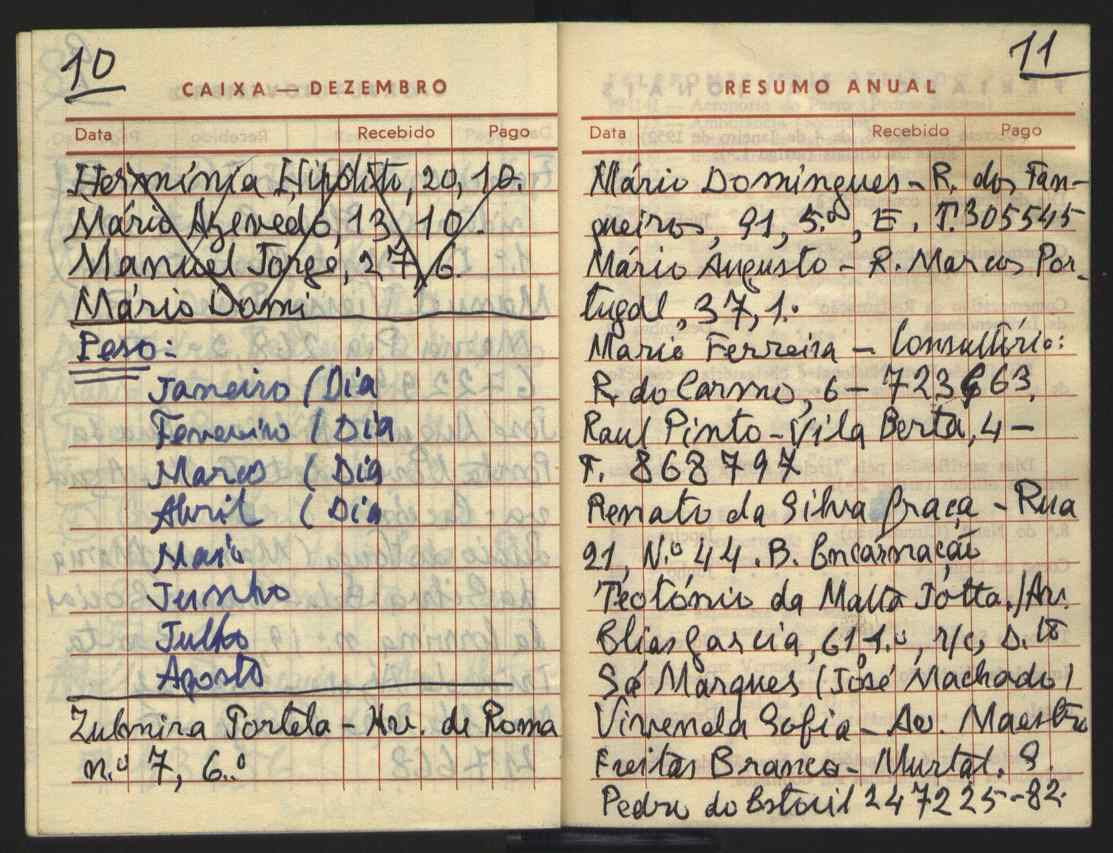 10
CAIXA — DEZEMBRO
Data Recebido Pago
Hermínia Hipólito, 20, 10.
Mário Azevedo, 13, 10.
Manuel Jorge, 27, 6.
Mário Domi
Peso:
Janeiro (Dia
Fevereiro (Dia
Março (Dia
Abril (Dia
Maio
Junho
Julho
Agosto
Zulmira Portela - Av. de Roma
n.º 7, 6.º
11
RESUMO ANUAL
Data Recebido Pago
Mário Domingues - R. dos Fan-
queiros, 91, 5.º, E. T. 305545
Mário Augusto - R. Marcos Por-
tugal, 37, 1.º
Mario Ferreira - Consultório:
R. do Carmo, 6 - 723663.
Raul Pinto - Vila Berta, 4 -
T. 868797
Renato da Silva Graça - Rua
21, N.º 44. B. Encarnação
Teotónio da Matta Jótta. / Av.
Elias Garcia, 61, 1.º, r/c, D.tº
Sá Marques (José Machado)
Vivenda Sofia - Av. Maestro
Freitas Branco - Murtal. S.
Pedro do Estoril 247225-82.